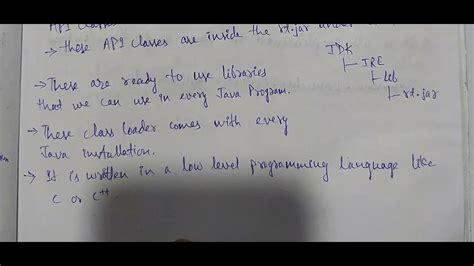 API classes
→ these API classes are inside the rt.jar under
JDK
JRE
→ These are ready to use libraries
lib
that we can use in every Java Program.
rt.jar
→ These class loader comes with every
Java installation.
→ It is written in a low level programming language like
C or C++